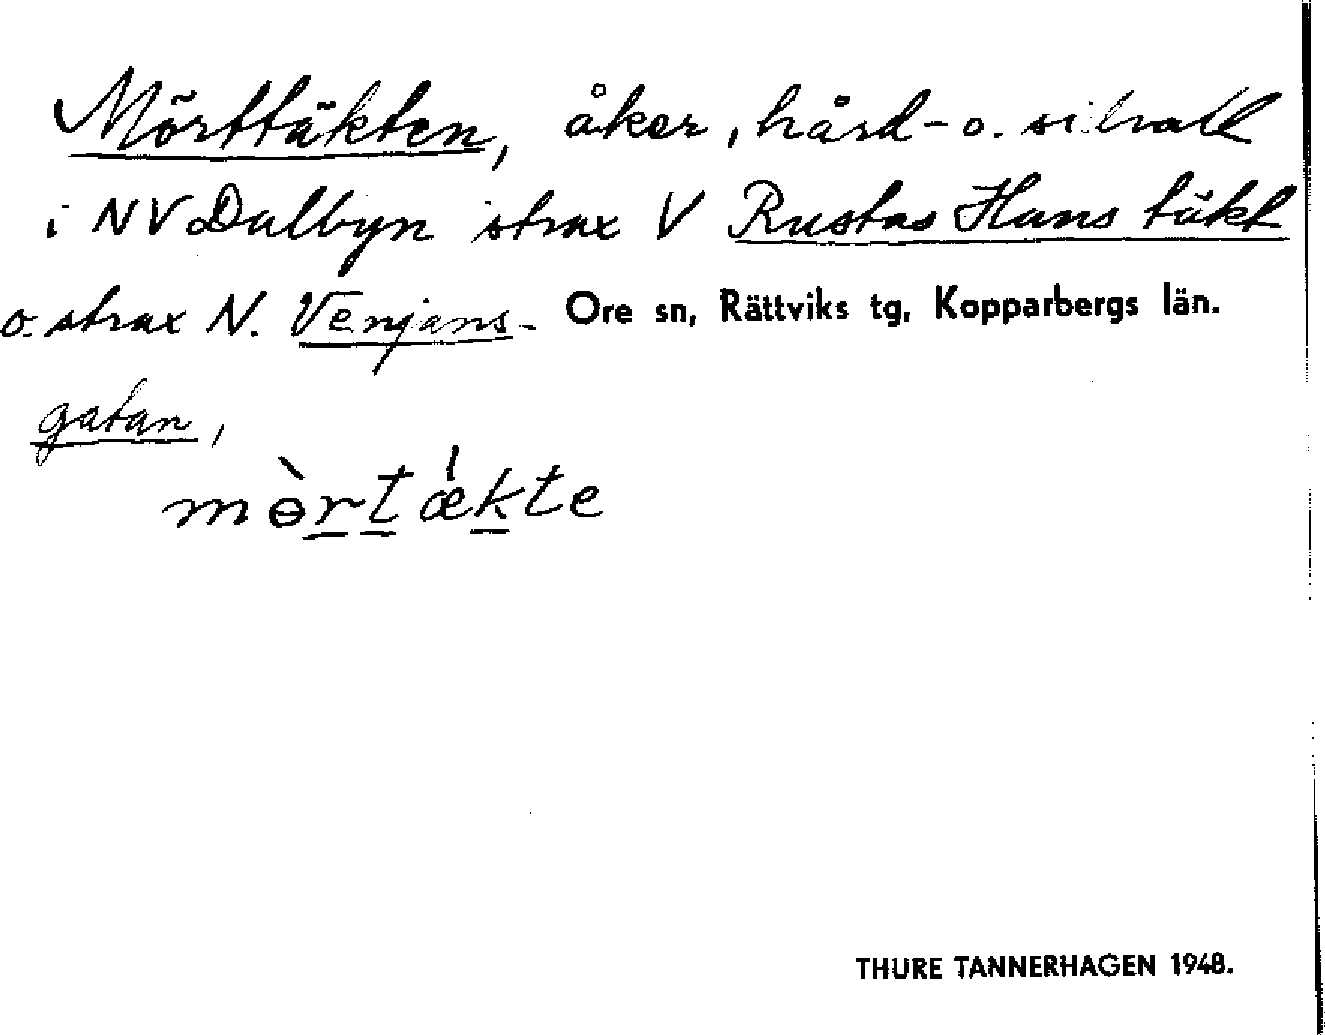 Mörttäkten, åker, hård- o. sidvall
i NV Dalbyn strax V Rustas Hans täkt
o. strax N. Venjans- Ore sn, Rättviks tg, Kopparbergs län.
gatan,
mɵ̀rtǽkte
THURE TANNERHAGEN 1948.